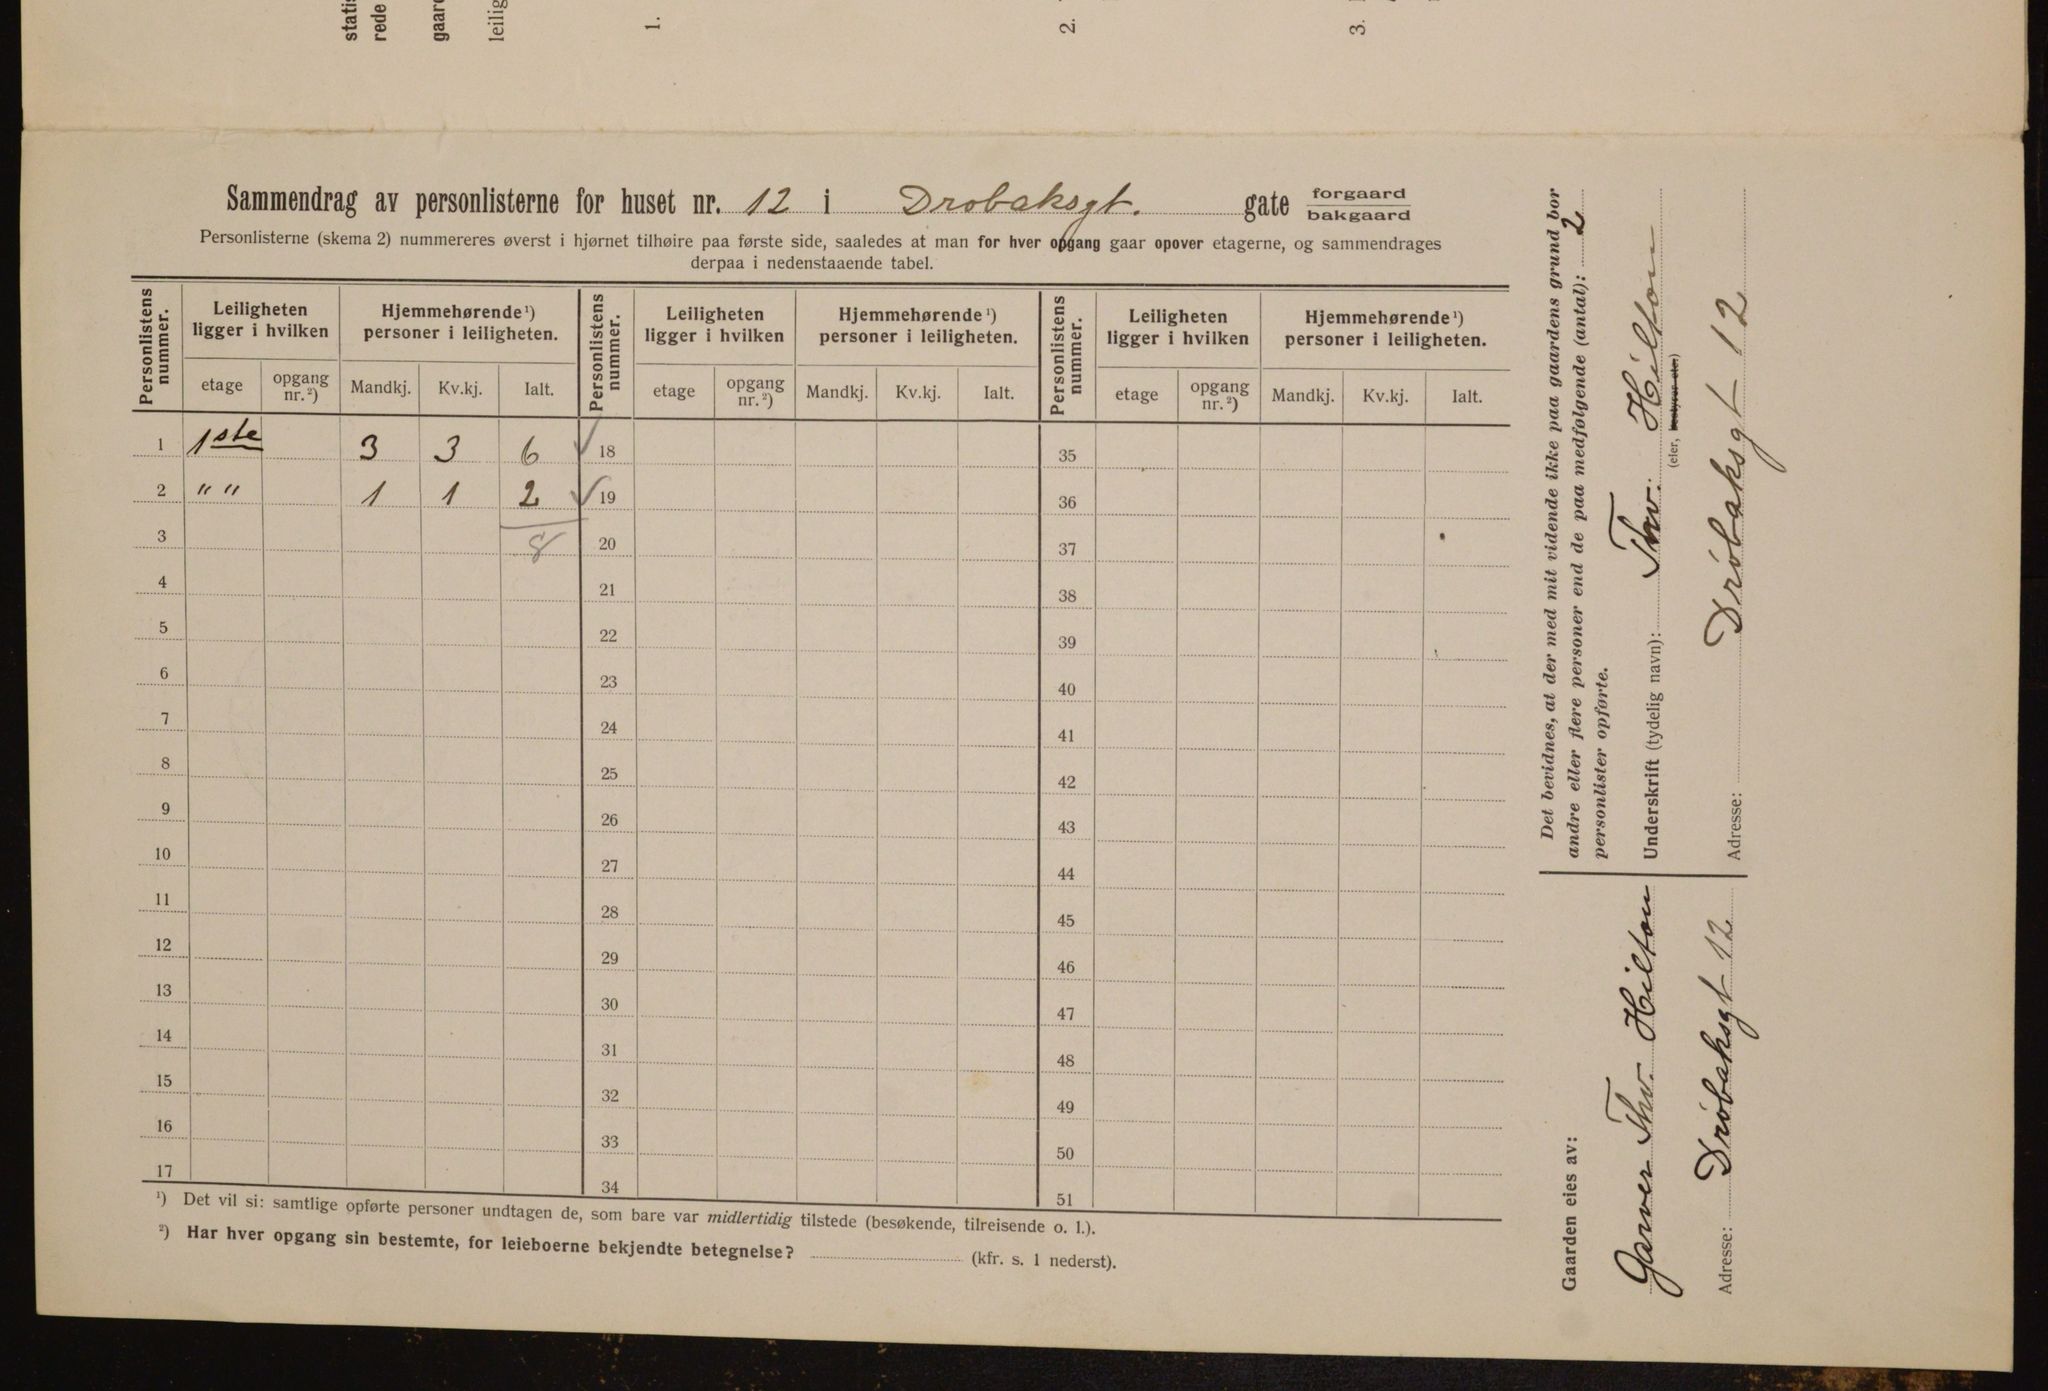 statis
rede
gaard
leilig
1.
2.
3.
Sammendrag av personlisterne for huset nr. 12 i Drøbaksgt. gate forgaard
bakgaard
Personlisterne (skema 2) nummereres øverst i hjørnet tilhøire paa første side, saaledes at man for hver opgang gaar opover etagerne, og sammendrages
derpaa i nedenstaaende tabel.
Personlistens nummer. Leiligheten ligger i hvilken Hjemmehørende ¹) personer i leiligheten. Personlistens nummer. Leiligheten ligger i hvilken Hjemmehørende ¹) personer i leiligheten. Personlistens nummer. Leiligheten ligger i hvilken Hjemmehørende ¹) personer i leiligheten.
etage opgang nr. ²) Mandkj. Kv.kj. Ialt. etage opgang nr. ²) Mandkj. Kv.kj. Ialt. etage opgang nr. ²) Mandkj. Kv.kj. Ialt.
1 1ste 3 3 6 ✓ 18 35
2 " " 1 1 2 ✓ 19 36
3 8 20 37
4 21 38
5 22 39
6 23 40
7 24 41
8 25 42
9 26 43
10 27 44
11 28 45
12 29 46
13 30 47
14 31 48
15 32 49
16 33 50
17 34 51
¹) Det vil si: samtlige opførte personer undtagen de, som bare var midlertidig tilstede (besøkende, tilreisende o. l.).
²) Har hver opgang sin bestemte, for leieboerne bekjendte betegnelse? (kfr. s. 1 nederst).
Det bevidnes, at der med mit vidende ikke paa gaardens grund bor
andre eller flere personer end de paa medfølgende (antal): 2
personlister opførte.
Underskrift (tydelig navn): Thv. Hilton
(eier, bestyrer eler.)
Adresse: Drøbaksgt 12
Gaarden eies av:
Garver Thv. Hilton
Adresse: Drøbaksgt 12